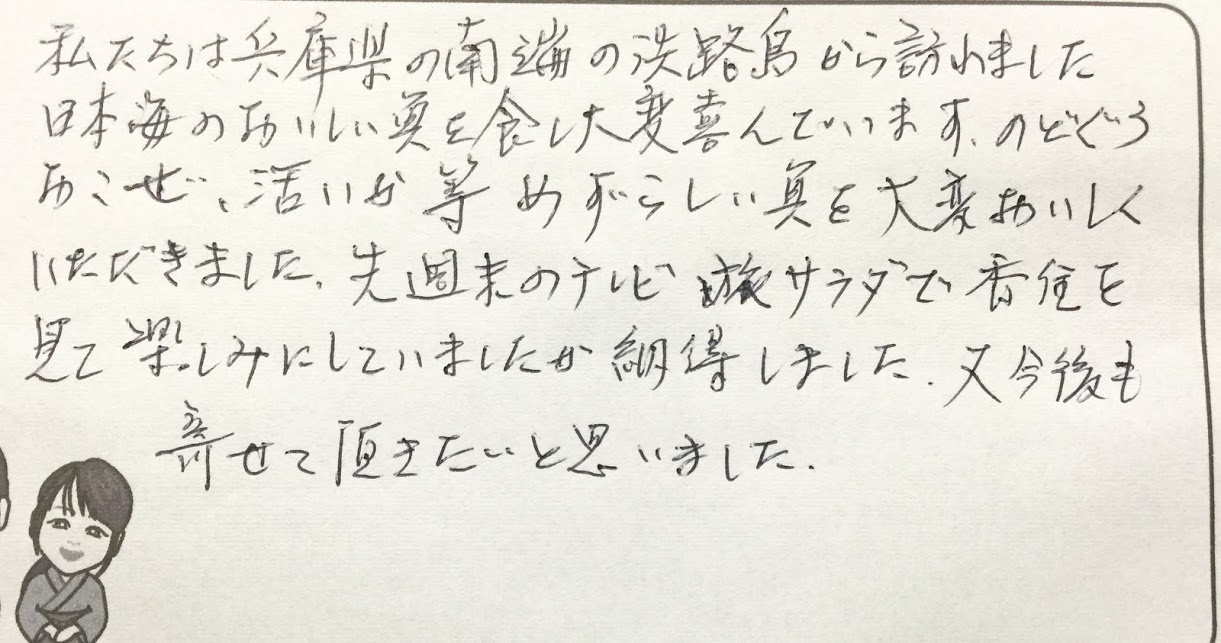 私たちは兵庫県の南端の淡路島から訪れました
日本海のおいしい魚を食し大変喜んでいます、のどぐろ
おこぜ、活いか等めずらしい魚を大変おいしく
いただきました、先週末のテレビ旅サラダで香住を
見て楽しみにしていましたが納得しました、又今後も
寄せて頂きたいと思いました.